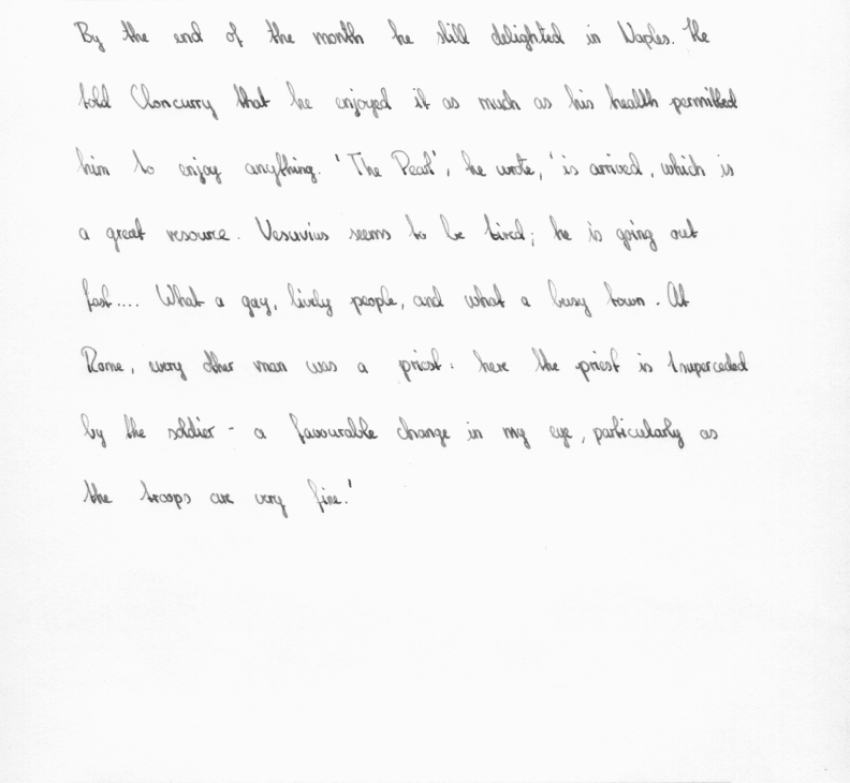 By the end of the month he still delighted in Naples. He
told Cloncurry that he enjoyed it as much as his health permitted
him to enjoy anything. 'The Pearl', he wrote, 'is arrived, which is
a great resource. Vesuvius seems to be tired; he is going out
fast.... What a gay, lively people, and what a busy town. At
Rome, every other man was a priest: here the priest is superceded
by the soldier - a favourable change in my eye, particularly as
the troops are very fine.'